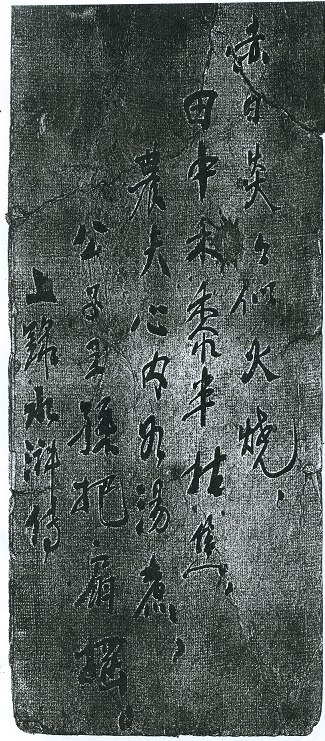 赤日炎々似火燒、
田中禾黍半枯焦、
農夫心内如湯煮、
公子王孫把扇搖、
上錄水滸傳